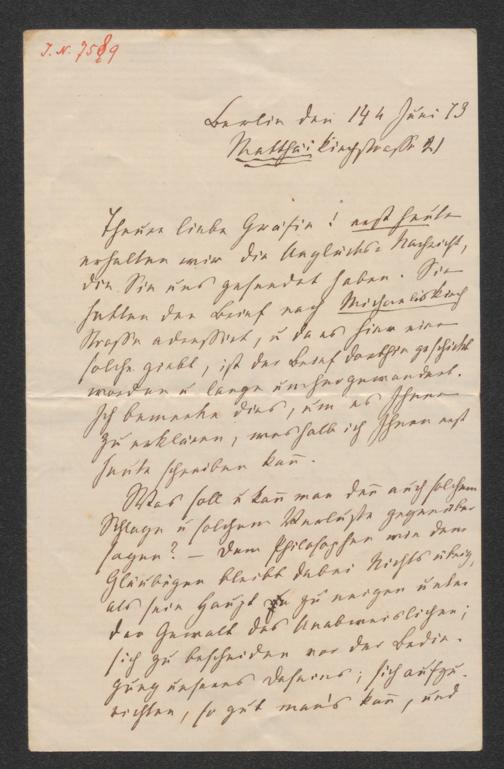 J. N. 7589
Berlin den 14t Juni 73
Matthäikirchstraße 21
Theure liebe Gräfin! erst heute
erhalten wir die Unglücks-Nachricht,
die Sie uns gesendet haben. Sie
hatten den Brief nach Michaeliskirch
Straße adressirt, u da es hier eine
solche giebt, ist der Brief dorthin geschickt
worden u lange umhergewandert.
Ich bemerke dies, um es Ihnen
zu erklären, weshalb ich Ihnen erst
heute schreiben kann.
Was soll u kann man denn auch solchem
Schlage u solchem Verluste gegenüber
sagen? — Dem Philosophen wie dem
Gläubigen bleibt dabei Nichts übrig,
als sein Haupt zu neigen unter
der Gewalt des Unabweislichen;
sich zu bescheiden vor der Bedin-
gung unseres Daseins; sich aufzu-
richten, so gut man's kann, und